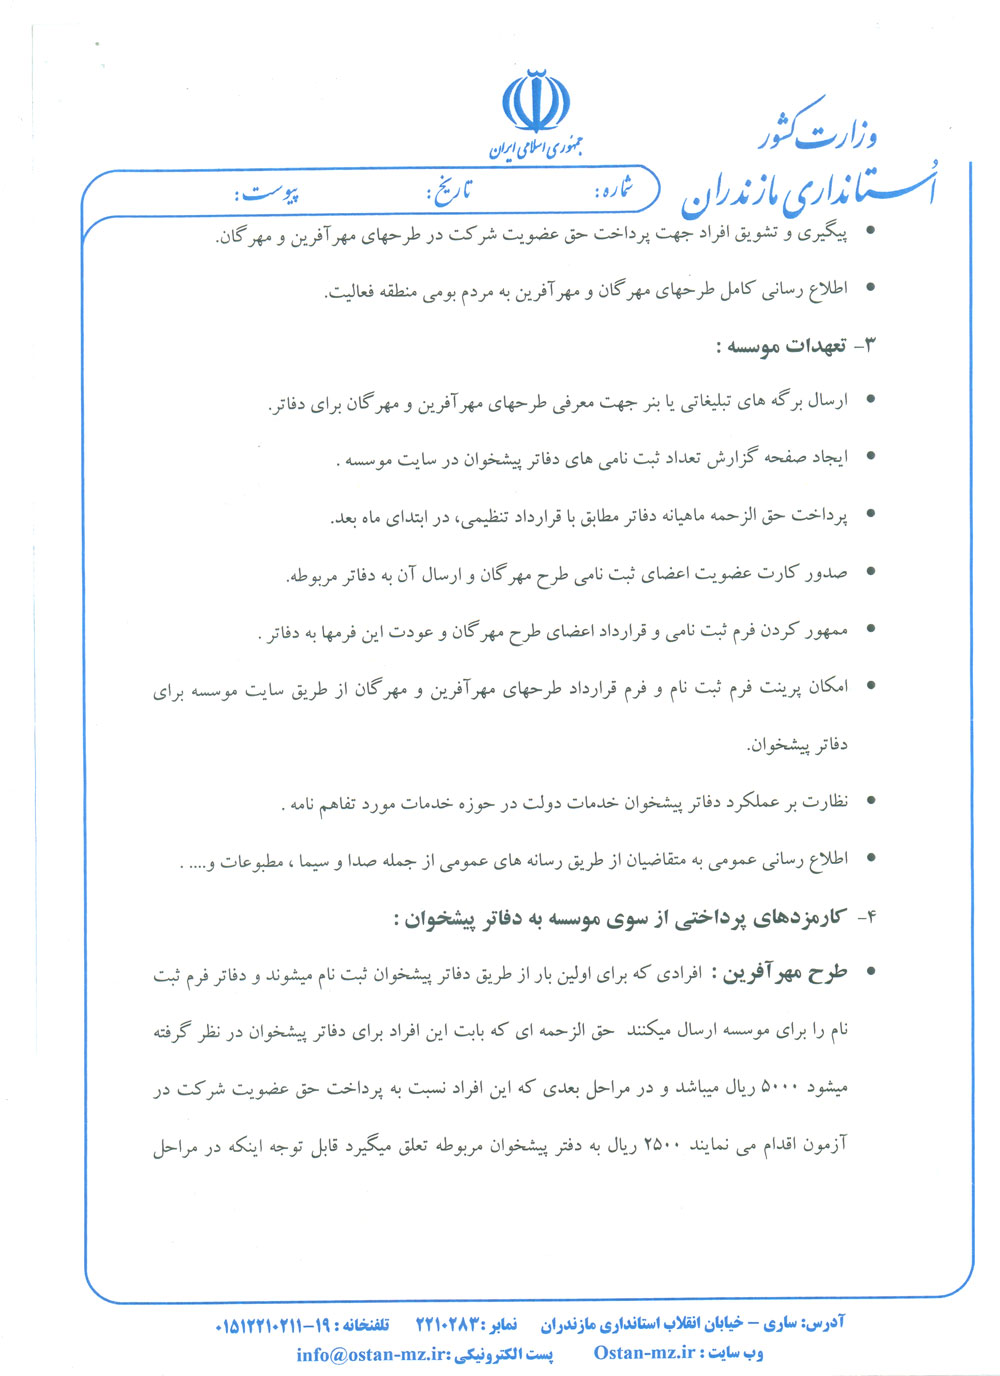 جمهوری اسلامی ایران
وزارت کشور
اُستانداری مازندران
شماره:
تاریخ:
پیوست:
• پیگیری و تشویق افراد جهت پرداخت حق عضویت شرکت در طرحهای مهرآفرین و مهرگان.
• اطلاع رسانی کامل طرحهای مهرگان و مهرآفرین به مردم بومی منطقه فعالیت.
۳- تعهدات موسسه :
• ارسال برگه های تبلیغاتی یا بنر جهت معرفی طرحهای مهرآفرین و مهرگان برای دفاتر.
• ایجاد صفحه گزارش تعداد ثبت نامی های دفاتر پیشخوان در سایت موسسه .
• پرداخت حق الزحمه ماهیانه دفاتر مطابق با قرارداد تنظیمی، در ابتدای ماه بعد.
• صدور کارت عضویت اعضای ثبت نامی طرح مهرگان و ارسال آن به دفاتر مربوطه.
• ممهور کردن فرم ثبت نامی و قرارداد اعضای طرح مهرگان و عودت این فرمها به دفاتر .
• امکان پرینت فرم ثبت نام و فرم قرارداد طرحهای مهرآفرین و مهرگان از طریق سایت موسسه برای
دفاتر پیشخوان.
• نظارت بر عملکرد دفاتر پیشخوان خدمات دولت در حوزه خدمات مورد تفاهم نامه .
• اطلاع رسانی عمومی به متقاضیان از طریق رسانه های عمومی از جمله صدا و سیما ، مطبوعات و.... .
۴- کارمزدهای پرداختی از سوی موسسه به دفاتر پیشخوان :
• طرح مهرآفرین : افرادی که برای اولین بار از طریق دفاتر پیشخوان ثبت نام میشوند و دفاتر فرم ثبت
نام را برای موسسه ارسال میکنند حق الزحمه ای که بابت این افراد برای دفاتر پیشخوان در نظر گرفته
میشود ۵۰۰۰ ریال میباشد و در مراحل بعدی که این افراد نسبت به پرداخت حق عضویت شرکت در
آزمون اقدام می نمایند ۲۵۰۰ ریال به دفتر پیشخوان مربوطه تعلق میگیرد قابل توجه اینکه در مراحل
آدرس: ساری – خیابان انقلاب استانداری مازندران نمابر : ۲۲۱۰۲۸۳ تلفنخانه : ۱۹–۰۱۵۱۲۲۱۰۲۱۱
وب سایت : Ostan-mz.ir پست الکترونیکی :info@ostan-mz.ir